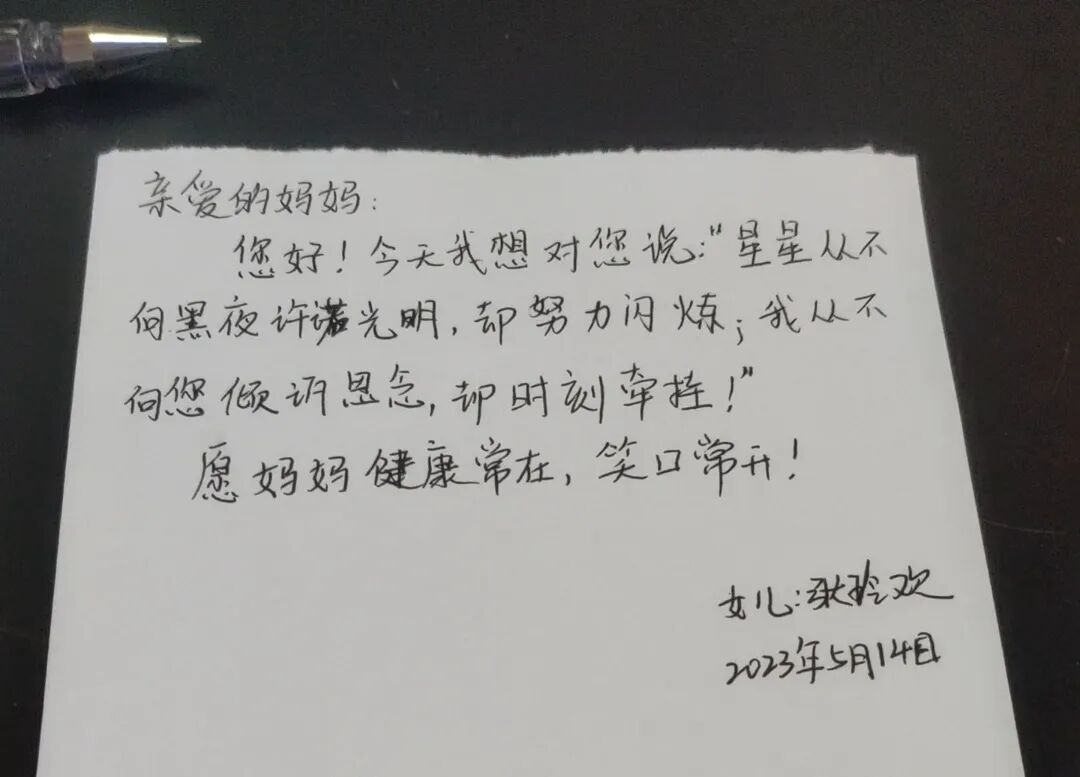 亲爱的妈妈：
您好！今天我想对您说："星星从不
向黑夜许诺光明，却努力闪炼；我从不
向您倾诉思念，却时刻牵挂！"
愿妈妈健康常在，笑口常开！
女儿：耿玲欢
2023年5月14日